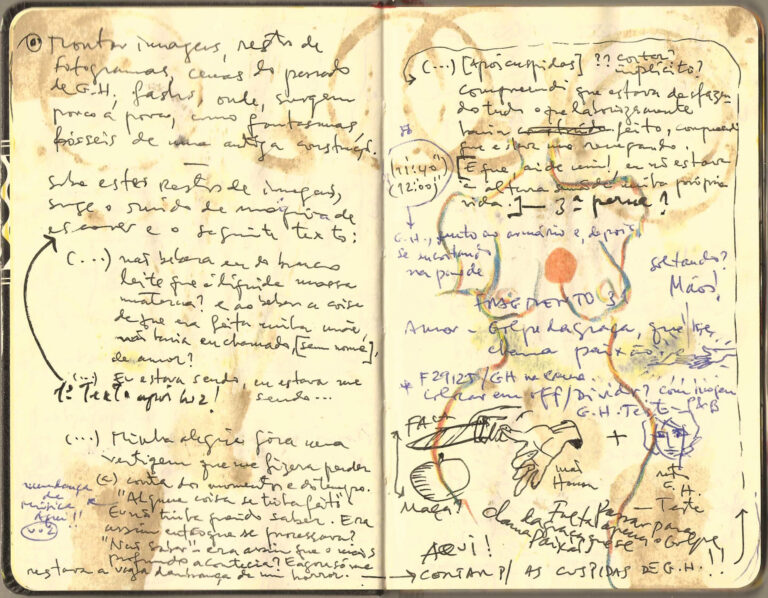 Montar imagens, resto de
fotogramas, cenas do passado
de G.H., flashs, onde, surgem
pouco a pouco, como fantasmas,
fósseis de uma antiga construção.
sobre estes restos de imagens,
surge o ruído de máquina de
escrever e o seguinte texto:
(...) não bebera eu do branco
leite que é líquida massa
materna? e ao beber a coisa
de que era feita minha mãe
não havia eu chamado, [sem nome],
de amor?
(...) Eu estava sendo, eu estava me
sendo...
1º Texto após luz!
(...) Minha alegria fôra uma
vertigem que me fizera perder
(a) conta dos momentos e do tempo.
"Alguma coisa se tinha feito"
Eu não tinha querido saber. Era
assim então que se processava?
"Não saber" era assim que o mais
profundo acontecia? E agora só me
restava a vaga lembrança de um horror.
mudança
de
música
Aqui!
(...) [Após cuspidas] ?? cortar?
implícito?
compreendi que estava desfazen
do tudo o que laboriosamente
havia feito, compreendi
que estava me
[E que, ai de mim!, eu não estava
à altura senão de minha própria
vida.] — 3ª perna?
(11:40")
(12:00)"
G.H., junto ao armário e, depois,
se encostando
na parede
soltando?
Mãos!
FRAGMENTO 3
Amor - Golpe da graça, que se
chama paixão
* F29125/G.H. na cama
em off/Dividir? com imagem
G.H. Texto - P&B
FACA
+
Maçã?
mão
G.H.
Texto
Falta
para
da graça que se o Golpe
chama Paixão
AQUI!
→ CONTAR P/ AS CUSPIDAS DE G.H.!!